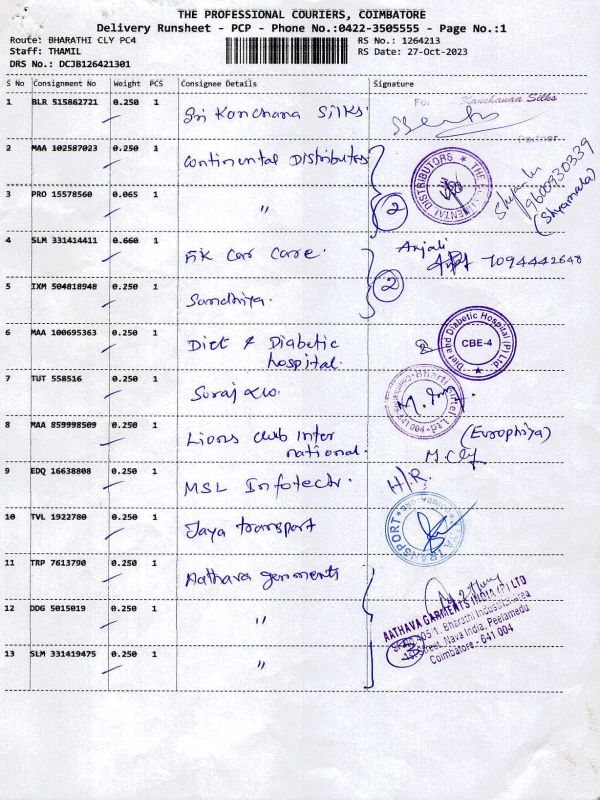 THE PROFESSIONAL COURIERS, COIMBATORE
Delivery Runsheet - PCP - Phone No.:0422-3505555 - Page No.:1
Route: BHARATHI CLY PC4
RS No.: 1264213
Staff: THAMIL
RS Date: 27-Oct-2023
DRS No.: DCJB126421301
S No Consignment No Weight PCS Consignee Details Signature
1 BLR 515862721 0.250 1 Sri Kanchana Silks.
Kanchanaa Silks
Partner
2 MAA 102587023 0.250 1 Continental Distributors
9600930339
(Shyamala)
3 PRO 15578560 0.065 1 "
2
4 SLM 331414411 0.660 1 AK Car Care.
Anjali
7094442648
5 IXM 504818948 0.250 1 Sandhiya.
2
6 MAA 100695363 0.250 1 Diet & Diabetic
hospital.
Diet and Diabetic Hospital (P) Ltd
CBE-4
7 TUT 558516 0.250 1
8 MAA 859998509 0.250 1 Lions club Inter
national.
9 EDQ 16638808 0.250 1 MSL Infotech.
H/R.
10 TVL 1922780 0.250 1 Jaya transport
11 TRP 7613790 0.250 1 Aathava garments
12 DDG 5015019 0.250 1 "
AATHAVA GARMENTS INDIA (P) LTD
Bharathi Industrial Area
Street, Nava India, Peelamedu
Coimbatore - 641 004
3
13 SLM 331419475 0.250 1 "